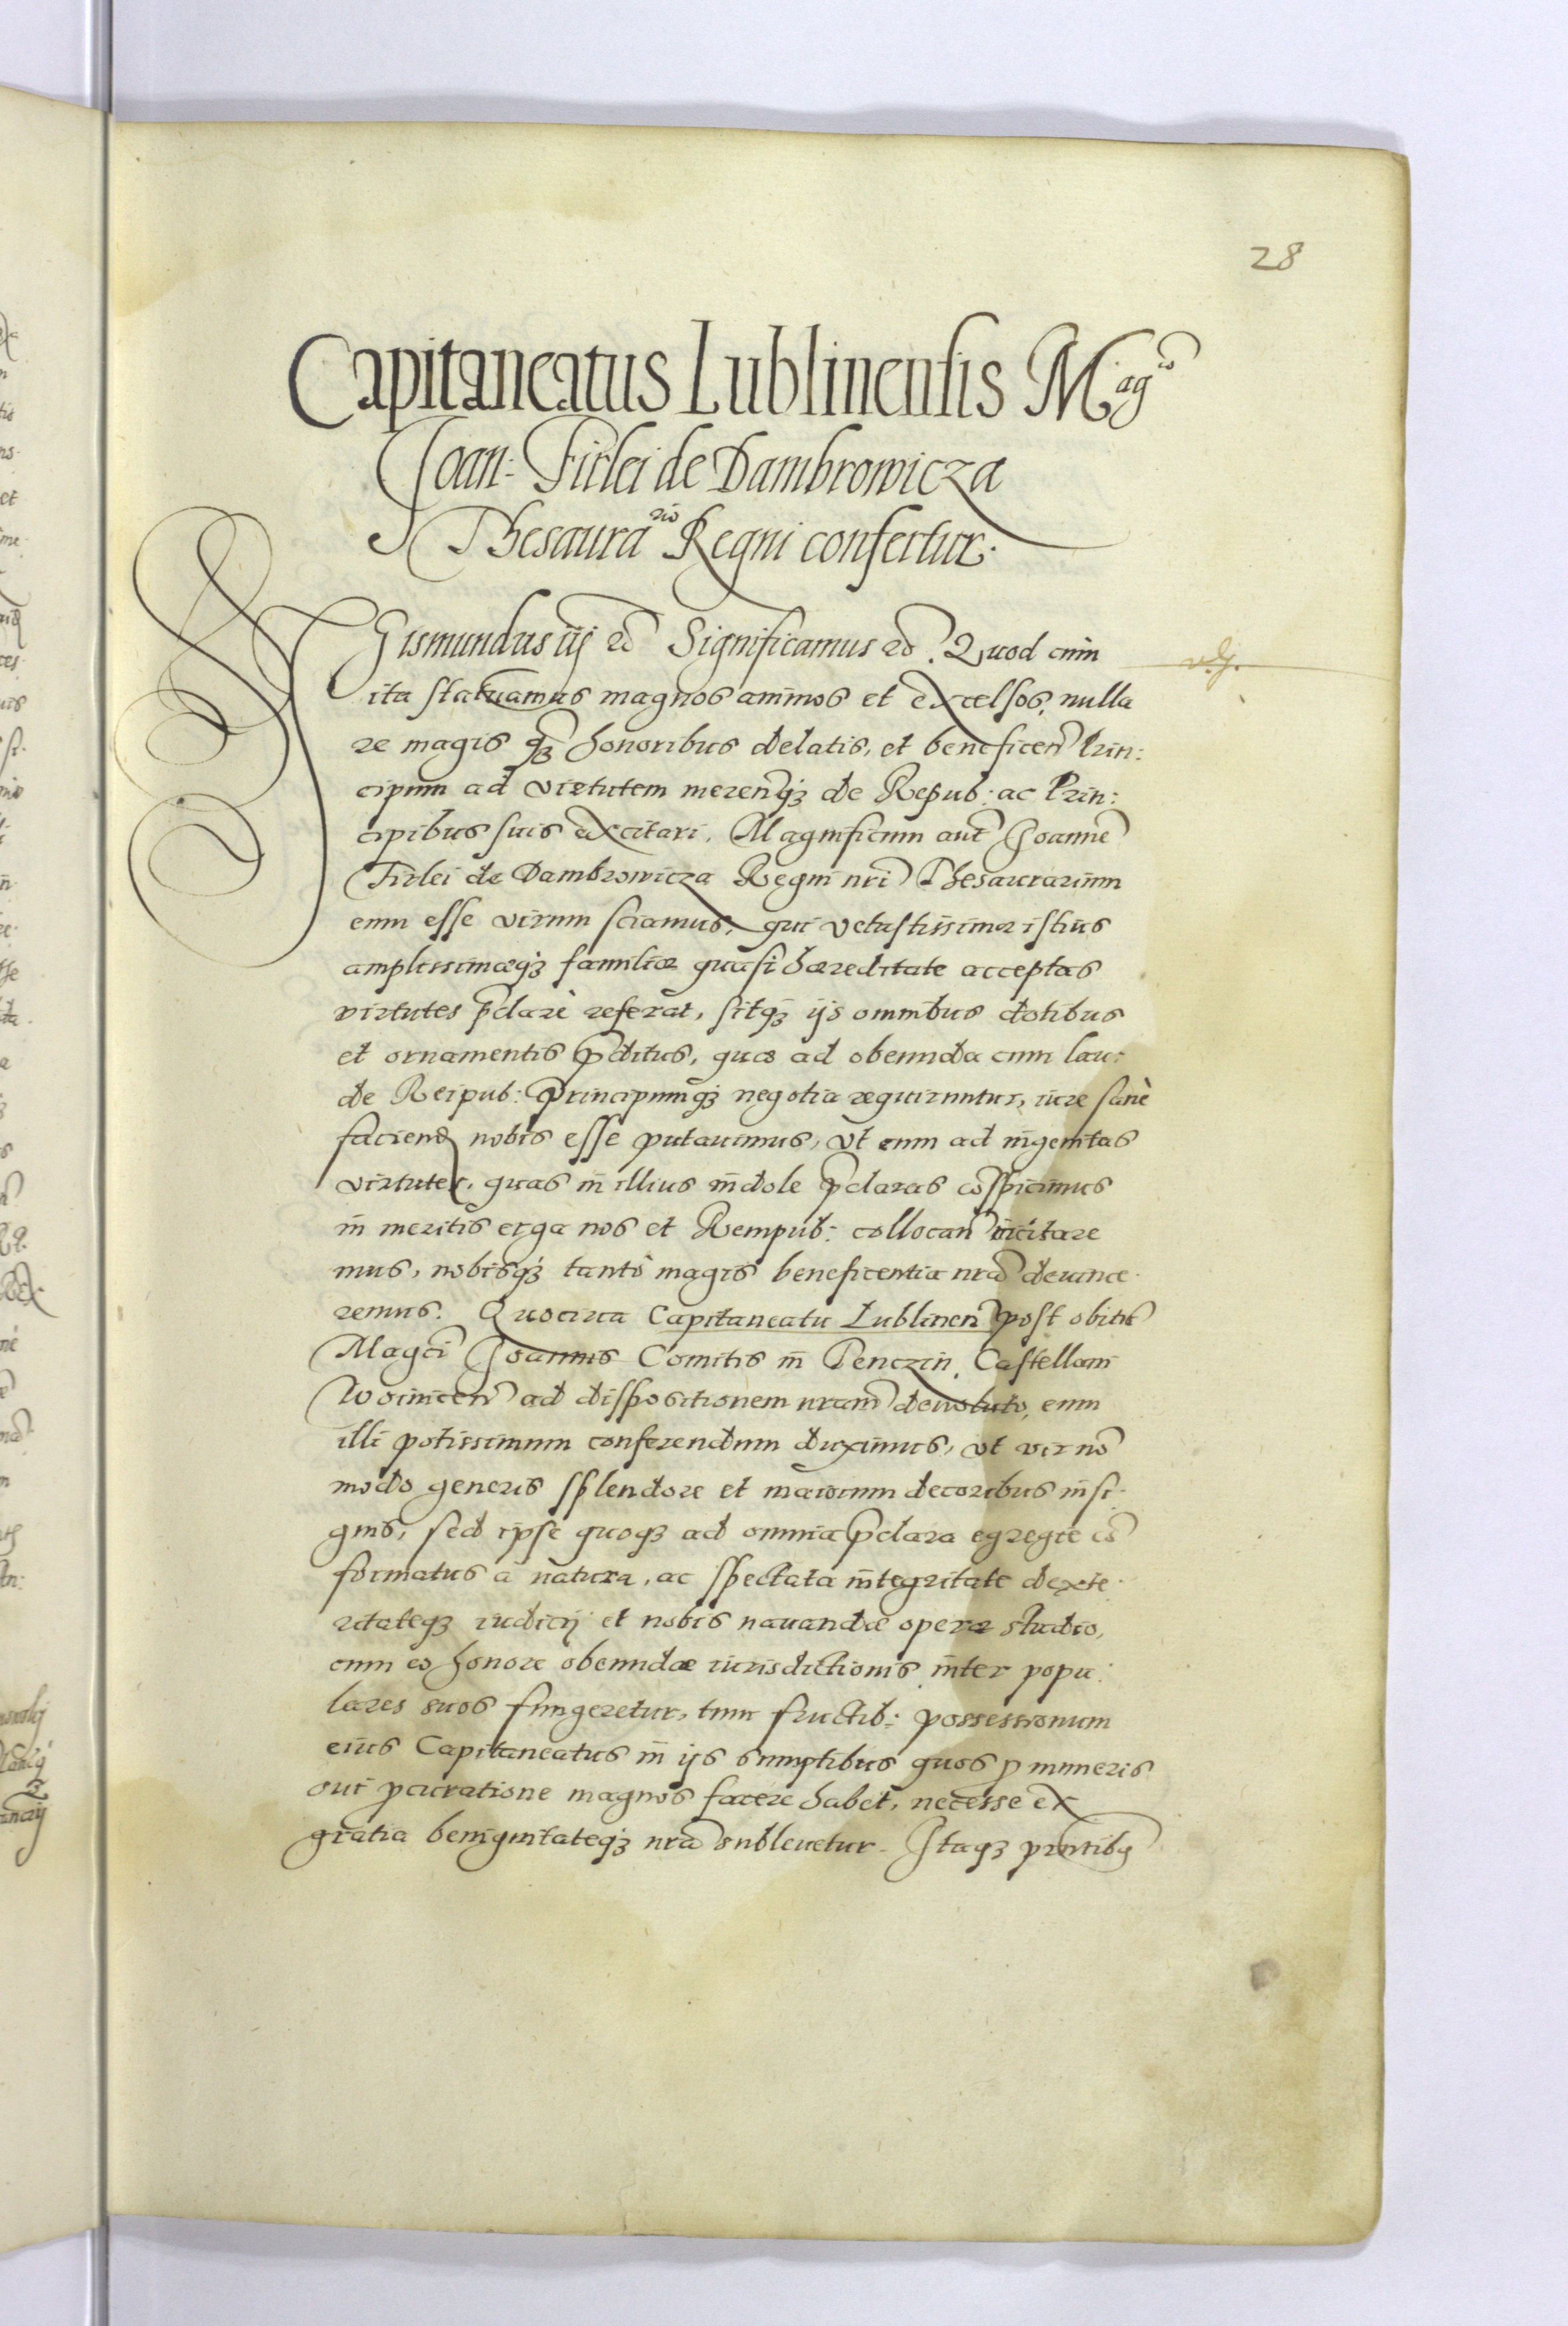 28
Capitaneatus Lublinensis Mag^co
Joan: Firlei de Dambrowicza
Thesaura^rio Regni confertur.
SJgismundus iij etc Significamus etc. Quod cum
ita statuamus magnos animos et excelsos, nulla
re magis qȝ honoribus delatis, et beneficen̄ Prin:
cipum ad virtutem meren̄qȝ de Repub: ac Prin:
cipibus suis excitari, Magnificum aut̄ Joanne̅
Firlei de Dambrowicza Regni nri̅ Thesaurarium
eum esse virum sciamus, qui vetustissimæ istius
amplissimæqȝ familiæ quasi hæreditate acceptas
virtutes p̄clarè referat, sitqȝ ijs omnibus dotibus
et ornamentis p̄ditus, quæ ad obeunda cum lau:
de Reipub: Principumqȝ negotia requiruntur, iure sanè
faciend̄ nobis esse putauimus, vt eum ad ingenitas
virtutes, quas in illius indole p̄claras co̅spicimus
in meritis erga nos et Rempub: collocan̄ incitare
mus, nobisqȝ tantò magis beneficentia nra̅ deuince.
remus. Quocirca Capitaneatu Lublinen̄ post obitu̅
Magci̅ Joannis Comitis in Tenczin, Castellani
Woinicen̄ ad dispositionem nram̅ deuoluto, eum
illi potissimum conferendum duximus, vt vir no̅
modo generis splendore et maiorum decoribus insi.
gnis, sed ipse quoqȝ ad omnia p̄clara egregie co̅
formatus a natura, ac spectata integritate dexte.
ritateqȝ iudicij et nobis nauandæ operæ studio,
cum eo honore obeundæ iurisdictionis inter popu:
lares suos fungeretur, tum fructib: possessionum
eius Capitaneatus in ijs sumptibus quos p̱ muneris
sui p̱curatione magnos facere habet, necesse ex
gratia benignitateqȝ nra̅ subleuetur. Itaqȝ pr̄ntibꝰ